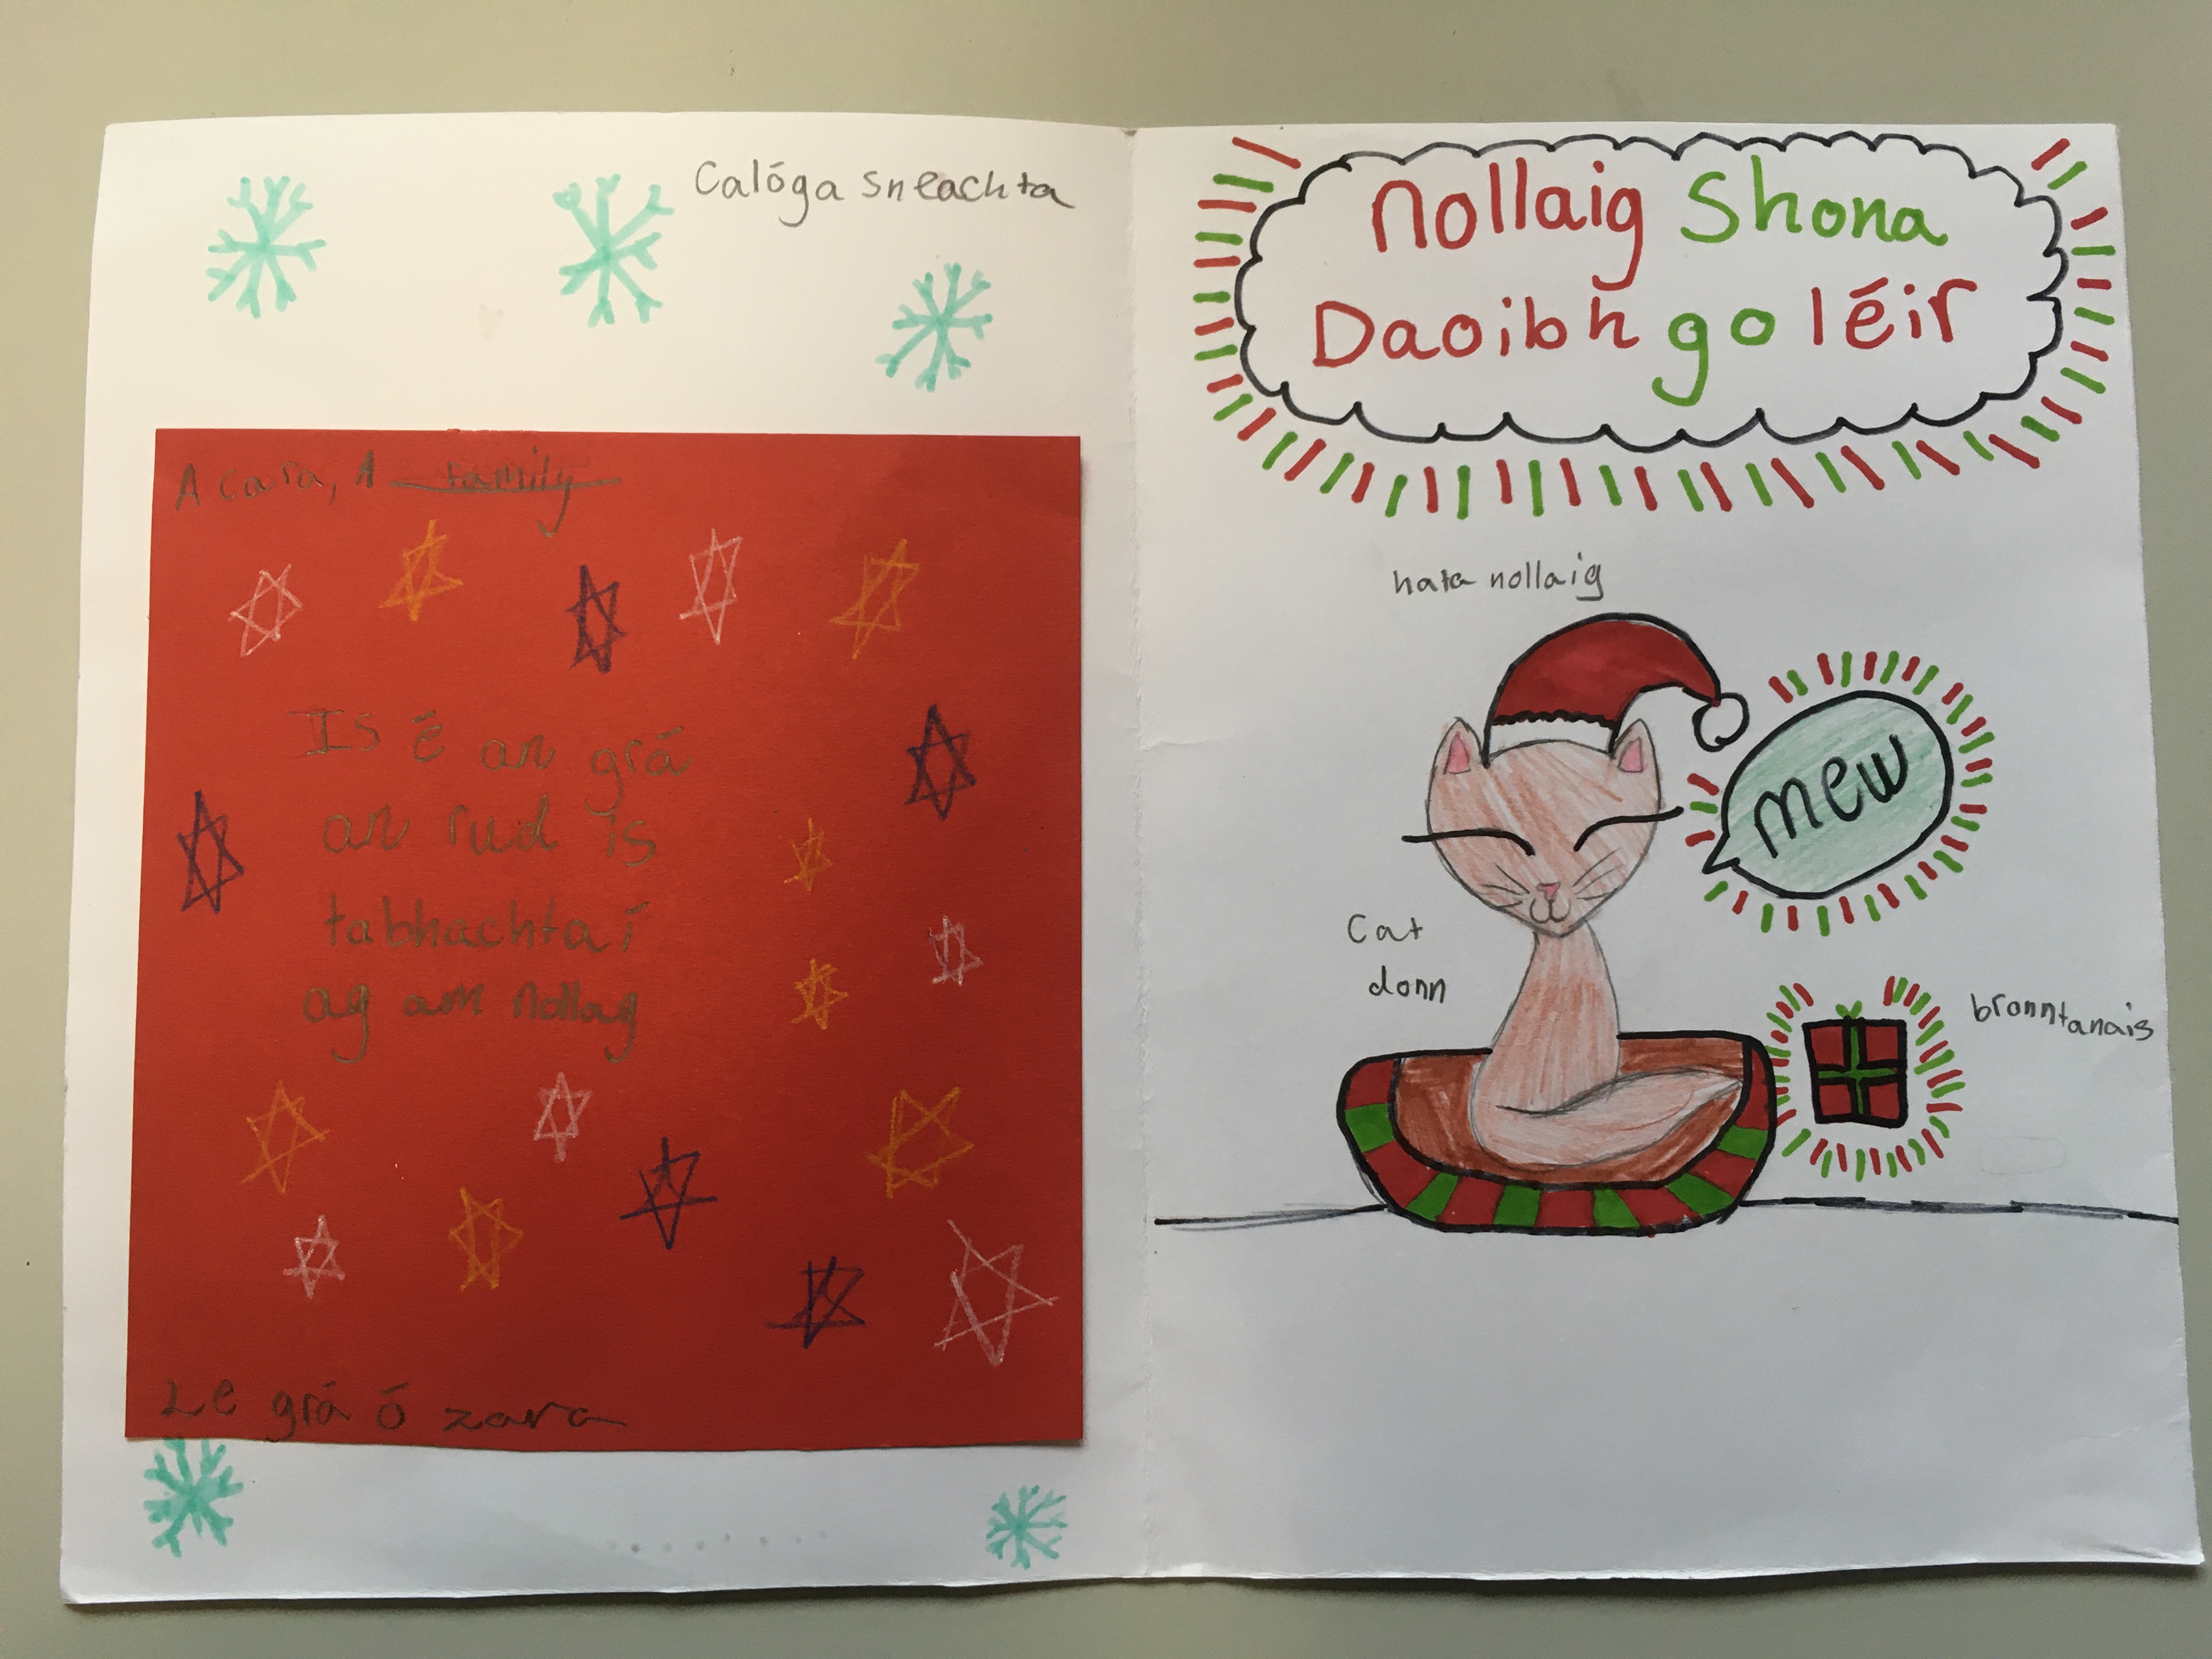 Calóga sneachta
A cara, A family
Is é an grá
an rud is
tabhachtaí
ag am nollag
Le grá ó zara
nollaig Shona
Daoibh go léir
hata nollaig
mew
Cat
donn
bronntanais